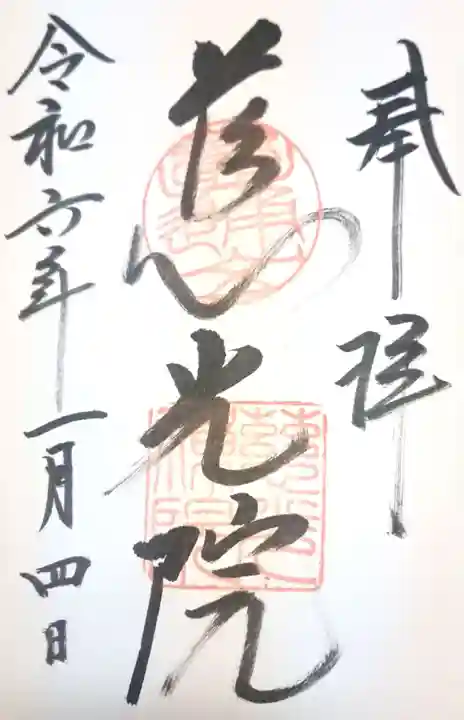 奉拝
光院
令和六年一月四日